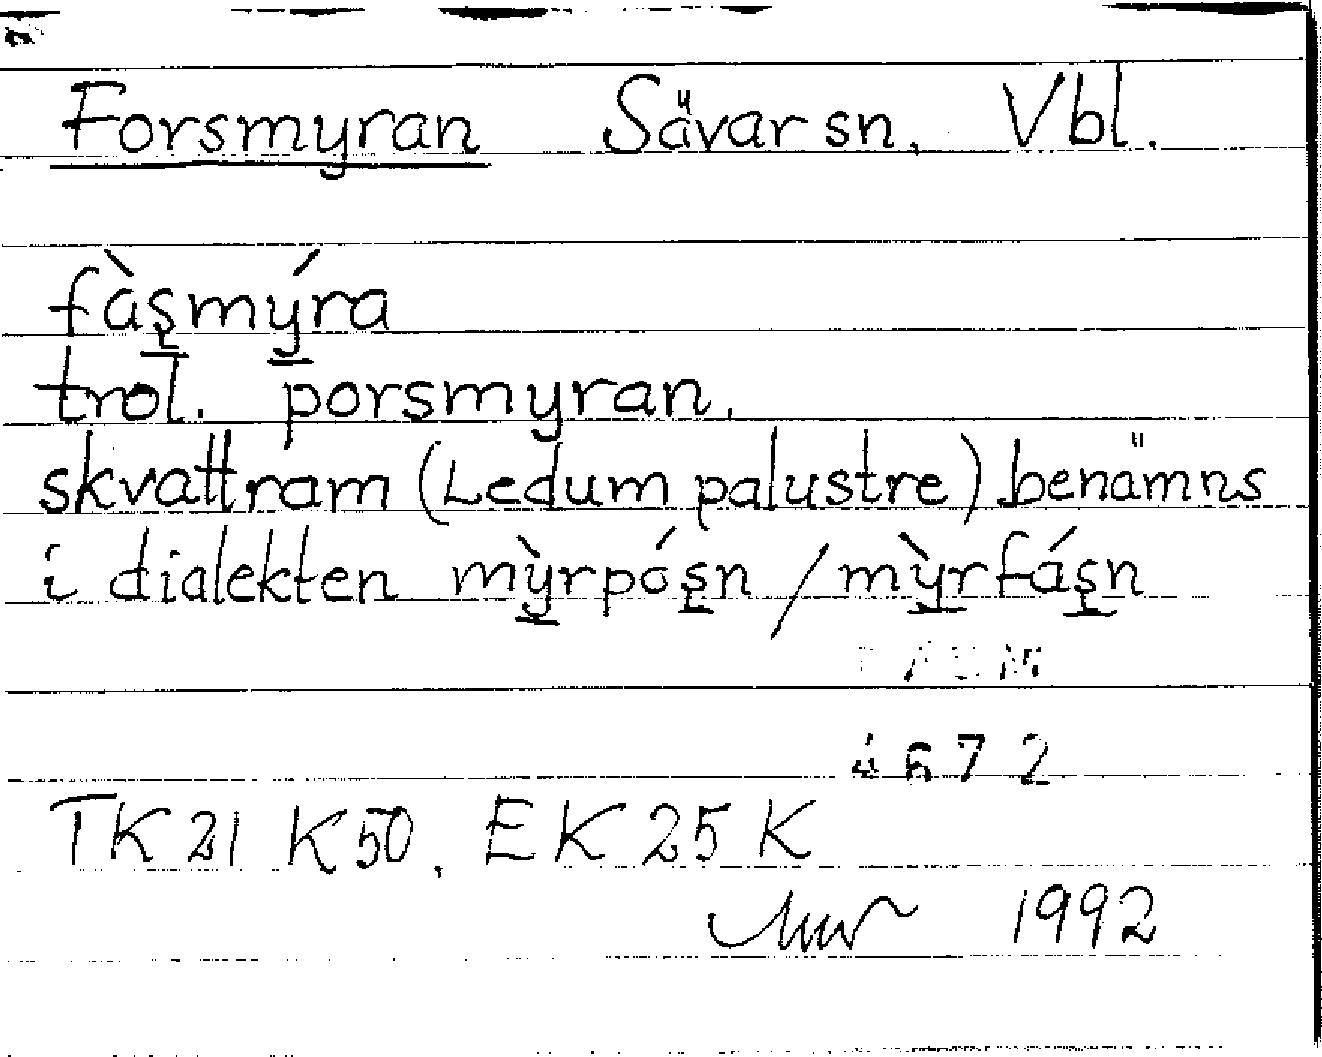 Forsmyran Sävar sn, Vbl.
fàʂmýra
trol. porsmyran.
skvattram (Ledum palustre) benämns
i dialekten mỳrpóʂn / mỳrfáʂn
DAUM
4672
TK21 K50, EK25K
1992